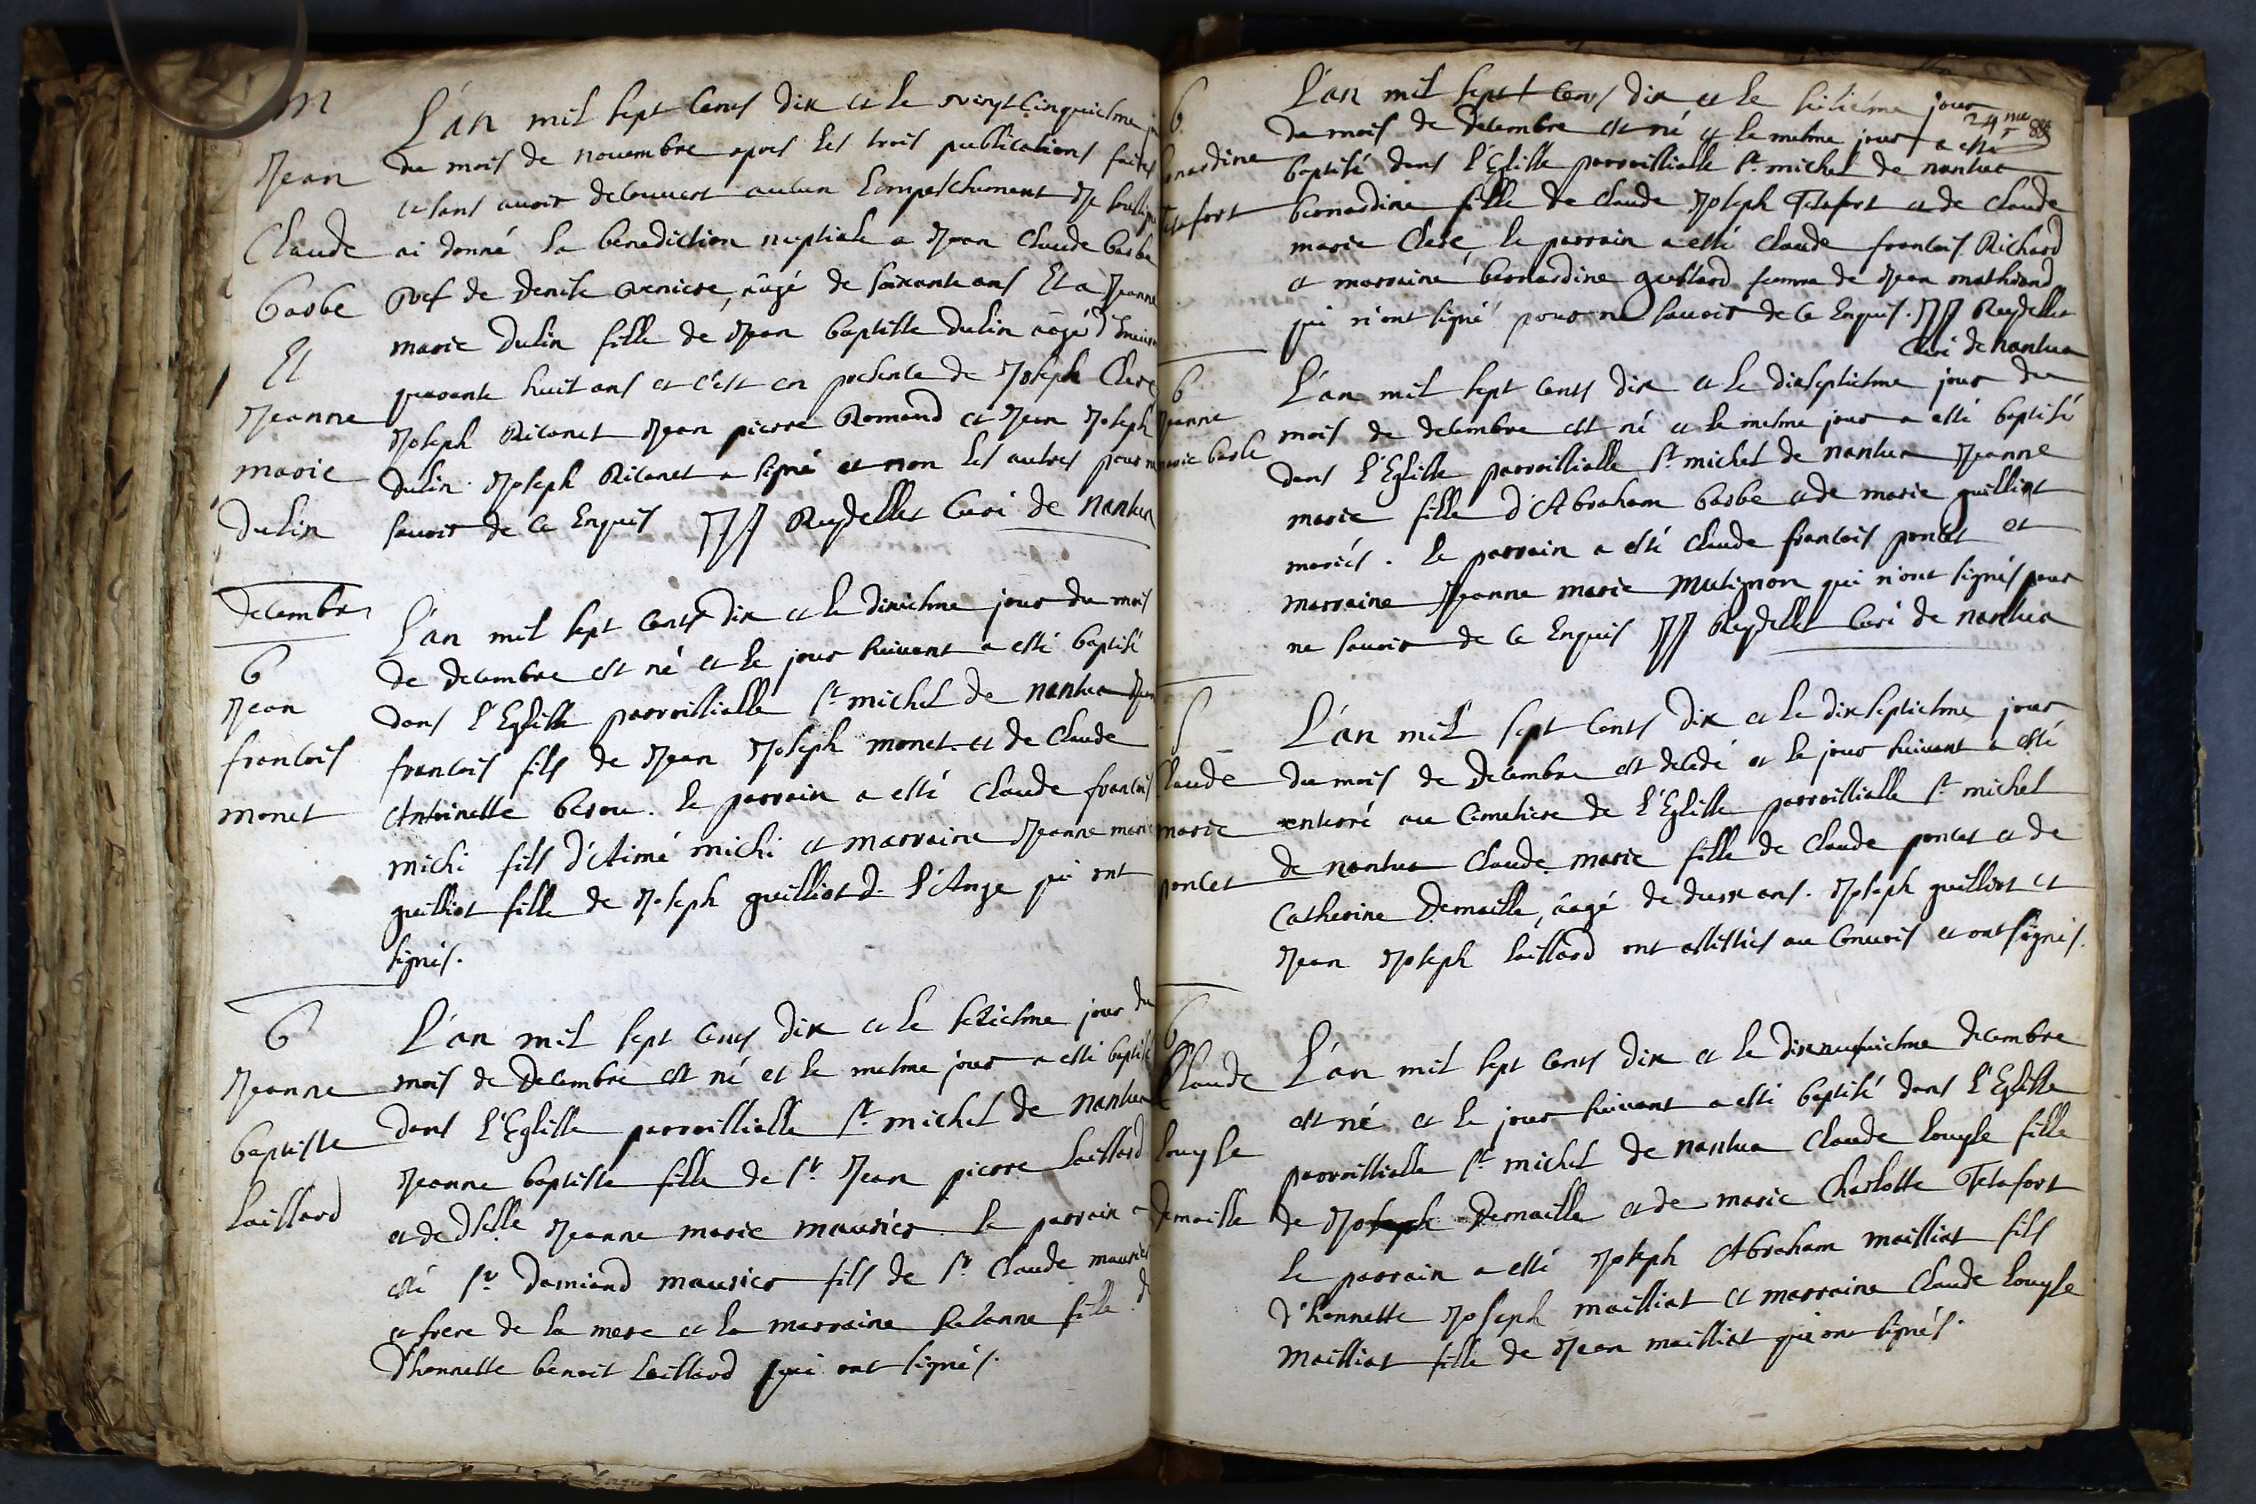 M
Jean
Claude
barbe
Et
Jeanne
marie
dulin
L'an mil sept cents dix et le vingt cinquiesme
du mois de novembre apres les trois publications faites
et sans avoir decouvert aucun Empeschement Je
ai donné la benediction nuptiale a Jean Claude barbe
vef de denise veniere, âagé de soixante ans Et a Jeanne
marie dulin fille de Jean baptiste dulin âagé
quarante huit ans et c'est en presence de Joseph Clerc
Joseph Ricanet Jean pierre Romand et Jean Joseph
dulin. Joseph Ricanet a signé et non les autres pour
scavoir de ce Enquis JJJ Reydellet Curé de nantua
decembre
b
Jean
francois
monet
L'an mil sept cents dix et le dixiesme jour du mois
de decembre est né et le jour suivant a esté baptisé
dans l'Eglise parroissialle st michel de nantua Jean
francois fils de Jean Joseph monet et de Claude
Antoinette berou. le parrain a esté Claude francois
michi fils d'Aimé michi et marraine Jeanne marie
guilliot fille de Joseph guilliot d. l'Ange qui ont
signés.
b
Jeanne
baptiste
baillard
L'an mil sept cents dix et le seziesme jour du
mois de decembre est né et le mesme jour a esté baptisé
dans l'Eglise parroissialle st michel de nantua
Jeanne baptiste fille de sr Jean pierre baillard
et de dselle Jeanne marie maurier le parrain a
esté sr damiand maurier fils de sr Claude maurier
et frere de la mere et la marraine suzanne fille de
d'honnette benoit baillard qui ont signés.
24me
b
bernardine
Tetafort
L'an mil sept cents dix et le seziesme jour
du mois de decembre est né et le mesme jour a esté
baptisé dans l'Eglise parroissialle st michel de nantua
bernardine fille de Claude Joseph Tetafort et de Claude
marie Clerc, le parrain a esté Claude francois Richard
et marraine bernardine guettard femme de Jean mathieand
qui n'ont signé pour ne scavoir de ce Enquis. JJJ Reydellet
Curé de nantua
b
Jeanne
marie barbe
L'an mil sept cents dix et le dixseptiesme jour du
mois de decembre est né et le mesme jour a esté baptisé
dans l'Eglise parroissialle st michel de nantua Jeanne
marie fille d'Abraham barbe et de marie guilliot
mariés. le parrain a esté Claude francois poncet et
marraine Jeanne marie mutignon qui n'ont signés pour
ne scavoir de ce Enquis JJJ Reydellet Curé de nantua
S
Claude
marie
poncet
L'an mil sept cents dix et le dixseptiesme jour
du mois de decembre est decedé et le jour suivant a esté
enterré au Cimetiere de l'Eglise parroissialle st michel
de nantua Claude marie fille de Claude poncet et de
Catherine Demaille, âagé de deux ans. Joseph guilliot et
Jean Joseph baillard ont assistés au Convois et ont signés.
b
Claude
louyse
Demaille
L'an mil sept cents dix et le dixneufviesme decembre
est né et le jour suivant a esté baptisé dans l'Eglise
parroissialle st michel de nantua Claude louyse fille
de Joseph Demaille et de marie Charlotte Tetafort
le parrain a esté Joseph Abraham mailliat fils
d'honnette Joseph mailliat et marraine Claude louyse
mailliat fille de Jean mailliat qui ont signés.